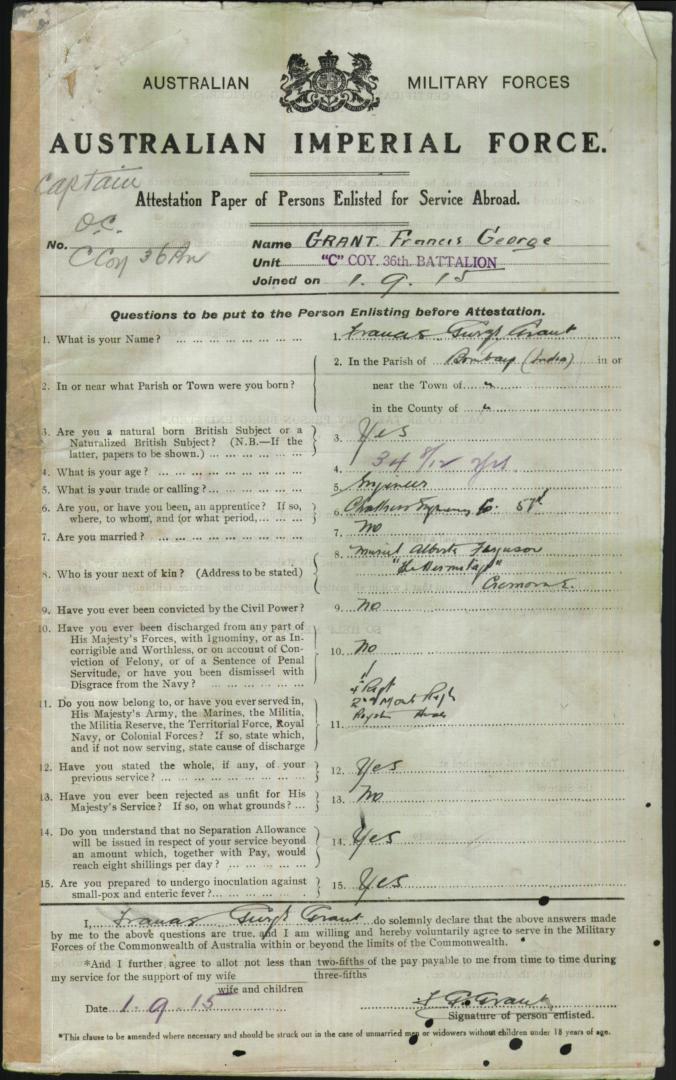 AUSTRALIAN MILITARY FORCES
AUSTRALIAN IMPERIAL FORCE.
Captain
Attestation Paper of Persons Enlisted for Service Abroad.
O.C.
No. C Coy 36 Bn
Name GRANT Francis George
Unit "C" COY. 36th. BATTALION
Joined on 1. 9. 15
Questions to be put to the Person Enlisting before Attestation.
1. What is your Name? ... 1. Francis George Grant
2. In or near what Parish or Town were you born?
2. In the Parish of Bombay (India) in or
near the Town of "
in the County of "
3. Are you a natural born British Subject or a
Naturalized British Subject? (N.B.—If the
latter, papers to be shown.) ... 3. Yes
4. What is your age? ... 4. 34 8/12 yrs
5. What is your trade or calling? ... 5. Engineer
6. Are you, or have you been, an apprentice? If so,
where, to whom, and for what period, ... 6. Co.
7. Are you married? ... 7. No
8. Who is your next of kin? (Address to be stated)
8. Muriel Alberta Ferguson
"The Hermitage"
Cremorne
9. Have you ever been convicted by the Civil Power? 9. No
10. Have you ever been discharged from any part of
His Majesty's Forces, with Ignominy, or as In-
corrigible and Worthless, or on account of Con-
viction of Felony, or of a Sentence of Penal
Servitude, or have you been dismissed with
Disgrace from the Navy? ... 10. No
11. Do you now belong to, or have you ever served in,
His Majesty's Army, the Marines, the Militia,
the Militia Reserve, the Territorial Force, Royal
Navy, or Colonial Forces? If so, state which,
and if not now serving, state cause of discharge
11. Regt
2nd
12. Have you stated the whole, if any, of your
previous service? ... 12. Yes
13. Have you ever been rejected as unfit for His
Majesty's Service? If so, on what grounds? ... 13. No
14. Do you understand that no Separation Allowance
will be issued in respect of your service beyond
an amount which, together with Pay, would
reach eight shillings per day? ... 14. Yes
15. Are you prepared to undergo inoculation against
small-pox and enteric fever? ... 15. Yes
I, Francis George Grant do solemnly declare that the above answers made
by me to the above questions are true, and I am willing and hereby voluntarily agree to serve in the Military
Forces of the Commonwealth of Australia within or beyond the limits of the Commonwealth.
*And I further agree to allot not less than two-fifths of the pay payable to me from time to time during
three-fifths
my service for the support of my wife
wife and children
Date 1. 9. 15
F G Grant
Signature of person enlisted.
*This clause to be amended where necessary and should be struck out in the case of unmarried men or widowers without children under 18 years of age.